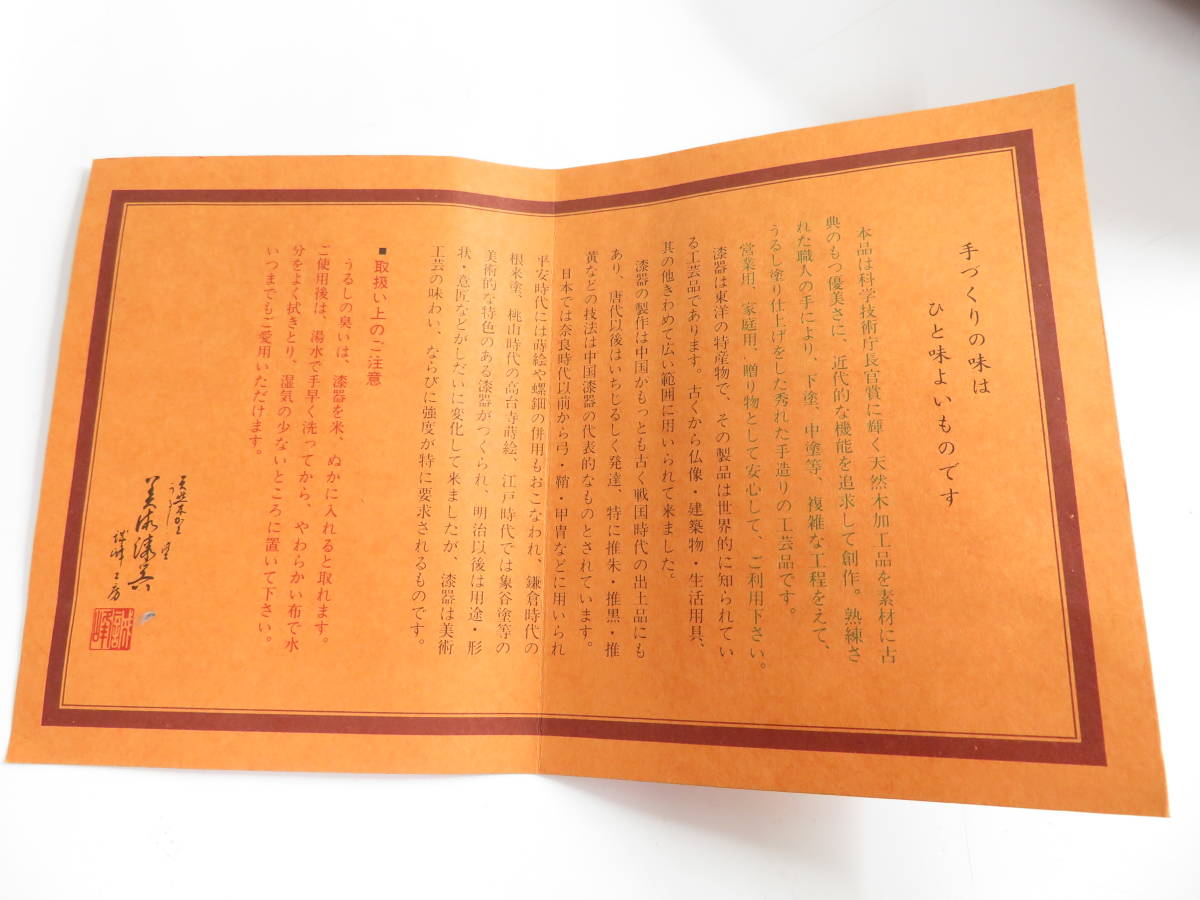 手づくりの味は
ひと味よいものです
本品は科学技術庁長官賞に輝く天然木加工品を素材に古
典のもつ優美さに、近代的な機能を追求して創作。熟練さ
れた職人の手により、下塗、中塗等、複雑な工程をえて、
うるし塗り仕上げをした秀れた手造りの工芸品です。
営業用、家庭用、贈り物として安心して、ご利用下さい。
漆器は東洋の特産物で、その製品は世界的に知られてい
る工芸品であります。古くから仏像・建築物・生活用具、
其の他きわめて広い範囲に用いられて来ました。
漆器の製作は中国がもっとも古く戦国時代の出土品にも
あり、唐代以後はいちじるしく発達、特に推朱・推黒・推
黄などの技法は中国漆器の代表的なものとされています。
日本では奈良時代以前から弓・鞘・甲冑などに用いられ
平安時代には蒔絵や螺鈿の併用もおこなわれ、鎌倉時代の
根来塗、桃山時代の高台寺蒔絵、江戸時代では象谷塗等の
美術的な特色のある漆器がつくられ、明治以後は用途・形
状・意匠などがしだいに変化して来ましたが、漆器は美術
工芸の味わい、ならびに強度が特に要求されるものです。
■取扱い上のご注意
うるしの臭いは、漆器を米、ぬかに入れると取れます。
ご使用後は、湯水で手早く洗ってから、やわらかい布で水
分をよく拭きとり、湿気の少ないところに置いて下さい。
いつまでもご愛用いただけます。
工房